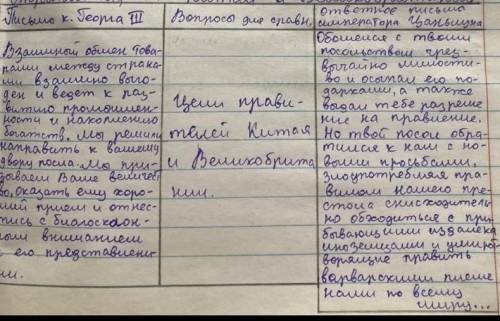 Письмо к. Георга III
Взаимный обмен това-
рами между страна-
ми взаимно выго-
ден и ведет к раз-
витию промышлен-
ности и накоплению
богатств. Мы решили
направить к вашему
двору посла. Мы при-
зываем Ваше величест
во, оказать ему хоро-
ший прием и отнес-
тись с благосклон-
ным вниманием
к его представлени
ям.
Вопросы для сравн.
Цели прави-
телей Китая
и Великобрита
нии.
ответное письмо
императора Цяньлуна
Обошелся с твоим
посольством чрез-
вычайно милости-
во и осыпал его по-
дарками, а также
выдал тебе разреше
ние на правление.
Но твой посол обра-
тился к нам с но-
выми просьбами,
злоупотребляя пра-
вилом нашего пре-
стола снисходитель
но обходиться с при
бывающими издалека
иноземцами и умирот
воряюще править
варварскими племе
нами по всему
миру...